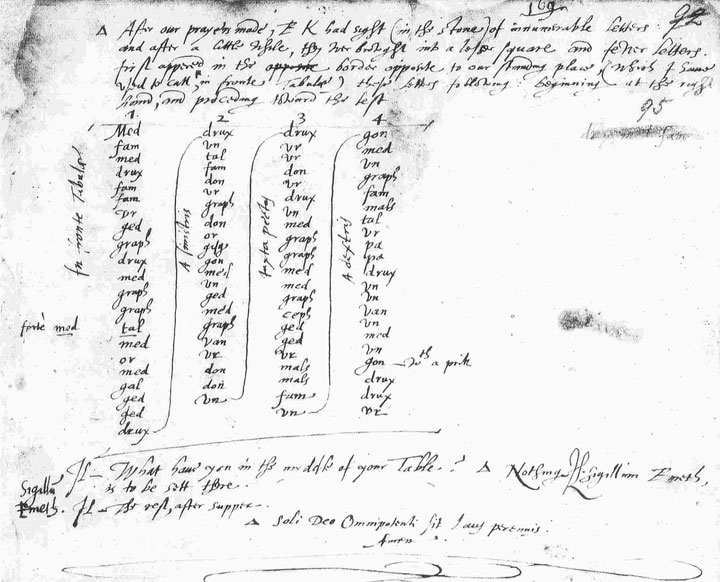 169
92
Δ After our prayers made, E K had sight (in the stone) of innumerable letters:
and after a little while, they wer browght into a lesser square and fewer letters.
first appered in the border opposite to our standing place, (which I have
used to call, in fronte Tabulæ) these letters following: beginning at the right
hand, and proceding toward the left
95
1
In fronte Tabulæ
Med
fam
med
drux
fam
fam
vr
ged
graph
drux
med
graph
graph
forte med
tal
med
or
med
gal
ged
ged
drux
2
A sinistris
drux
vn
tal
fam
don
vr
graph
don
or
gisg
gon
med
vn
ged
med
graph
van
vr
don
don
vn
3
Juxta pectus
drux
vr
vr
don
vr
drux
vn
med
graph
graph
med
med
graph
ceph
ged
ged
vr
mals
mals
fam
vn
4
A dextris
gon
med
vn
graph
fam
mals
tal
vr
pa
pa
drux
vn
vn
van
vn
med
vn
gon – wth a prik
drux
drux
vr
Il – What have you in the middle of your Table? Δ Nothing. Il – Sigillum Emeth,
is to be sett there.
Sigillū
Emeth.
Il – The rest, after supper.
Δ Soli Deo Omnipotenti sit laus perennis.
Amen